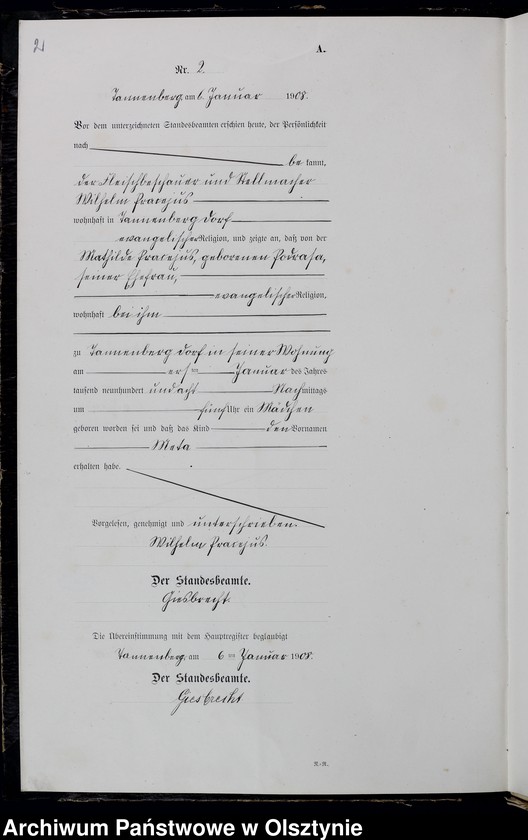 2
A.
Nr. 2.
Tannenberg am 6. Januar 1908.
Vor dem unterzeichneten Standesbeamten erschien heute, der Persönlichkeit
nach
bekannt,
der Fleischbeschauer und Stellmacher
Wilhelm Pracejus
wohnhaft in Tannenberg Dorf
evangelischer Religion, und zeigte an, daß von der
Mathilde Pracejus, geborenen Podrasa,
seiner Ehefrau,
evangelischer Religion,
wohnhaft bei ihm
zu Tannenberg Dorf in seiner Wohnung
am ersten Januar des Jahres
tausend neunhundert und acht Nachmittags
um fünf Uhr ein Mädchen
geboren worden sei und daß das Kind den Vornamen
Meta
erhalten habe.
Vorgelesen, genehmigt und unterschrieben.
Wilhelm Pracejus.
Der Standesbeamte.
Giesbrecht.
Die Übereinstimmung mit dem Hauptregister beglaubigt
Tannenberg, am 6ten Januar 1908.
Der Standesbeamte.
Giesbrecht
Archiwum Państwowe w Olsztynie